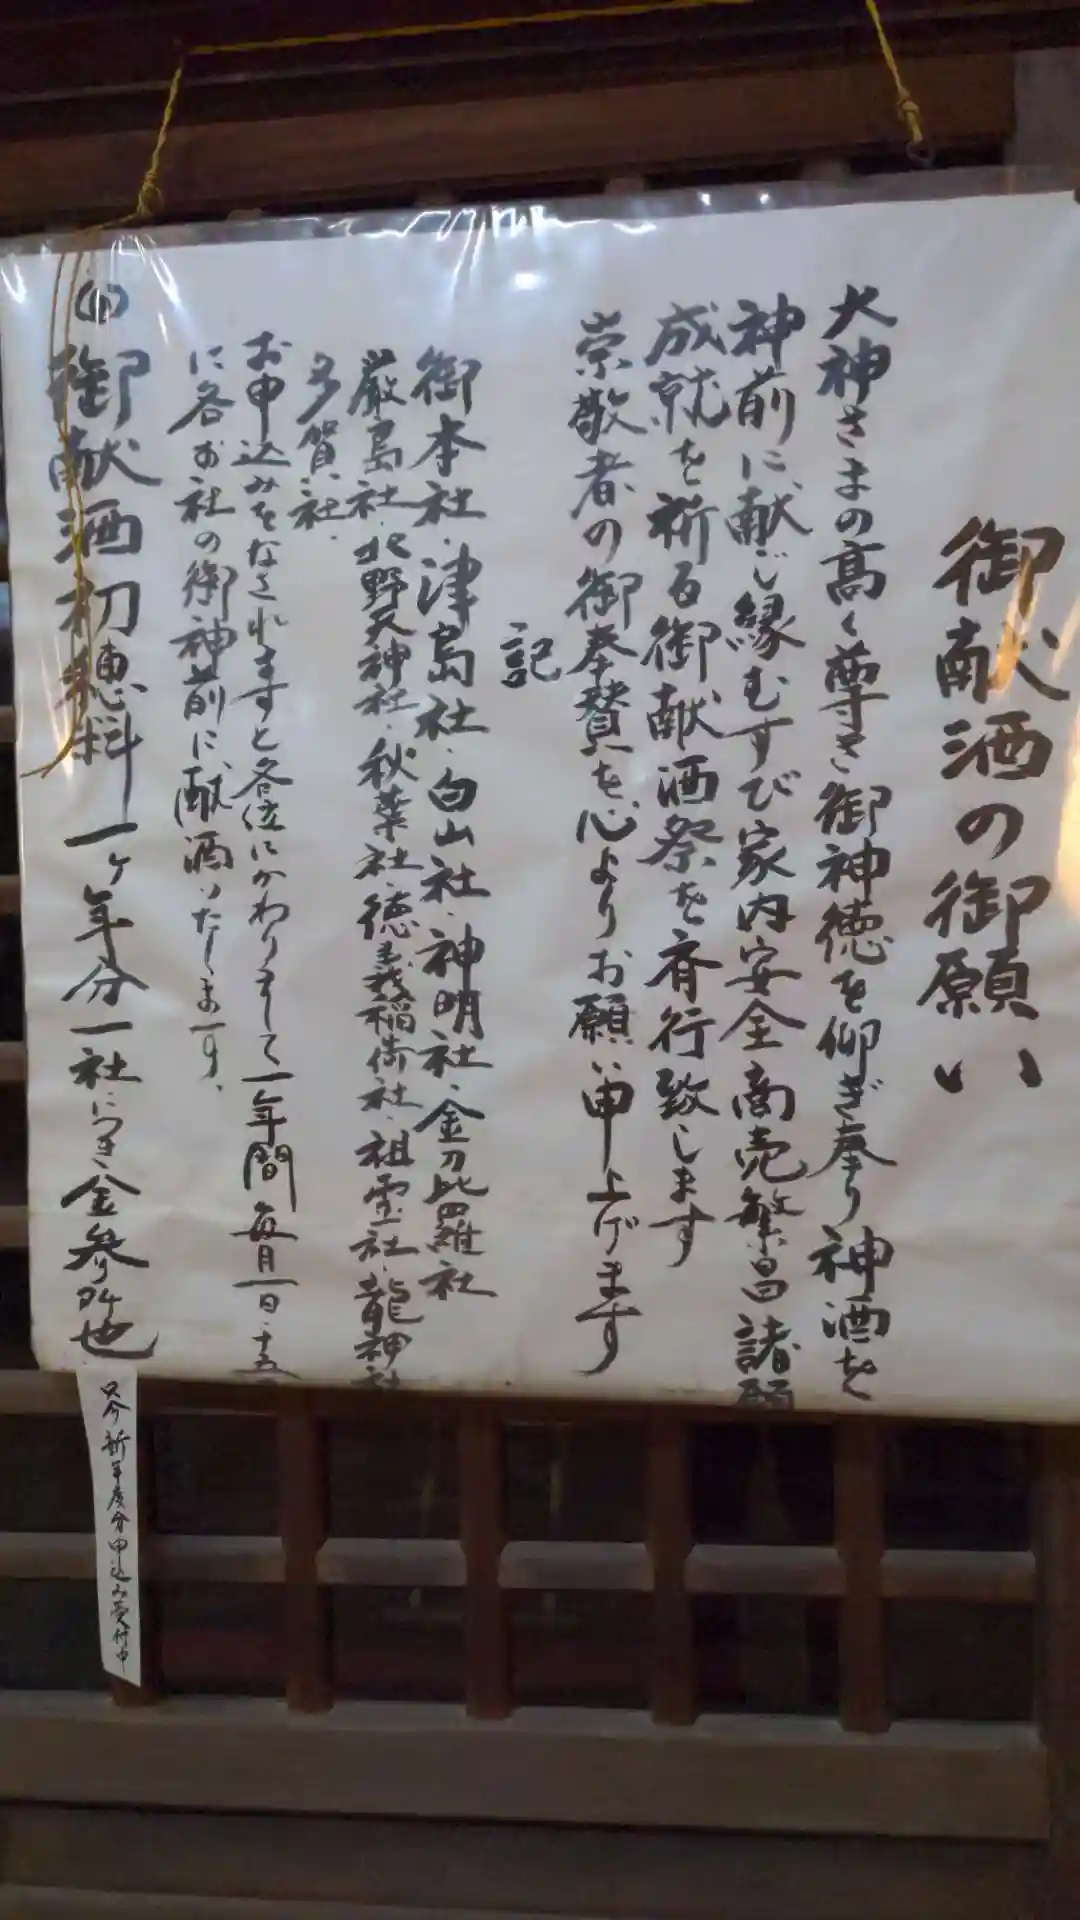 御献酒の御願い
大神さまの高く尊き御神徳を仰ぎ奉り神酒を
神前に献じ縁むすび家内安全商売繁昌諸願
成就を祈る御献酒祭を斉行致します
崇敬者の御奉賛を心よりお願い申上げます
記
御本社、津島社、白山社、神明社、金刀比羅社
厳島社、北野天神社、秋葉社、徳義稲荷社、祖霊社、龍神社
多賀社、
お申込みをなされますと各位にかわりまして一年間毎月一日・十五
に各お社の御神前に献酒いたします、
御献酒初穂料一ヶ年分一社につき金参阡也
只今新年度分申込み受付中